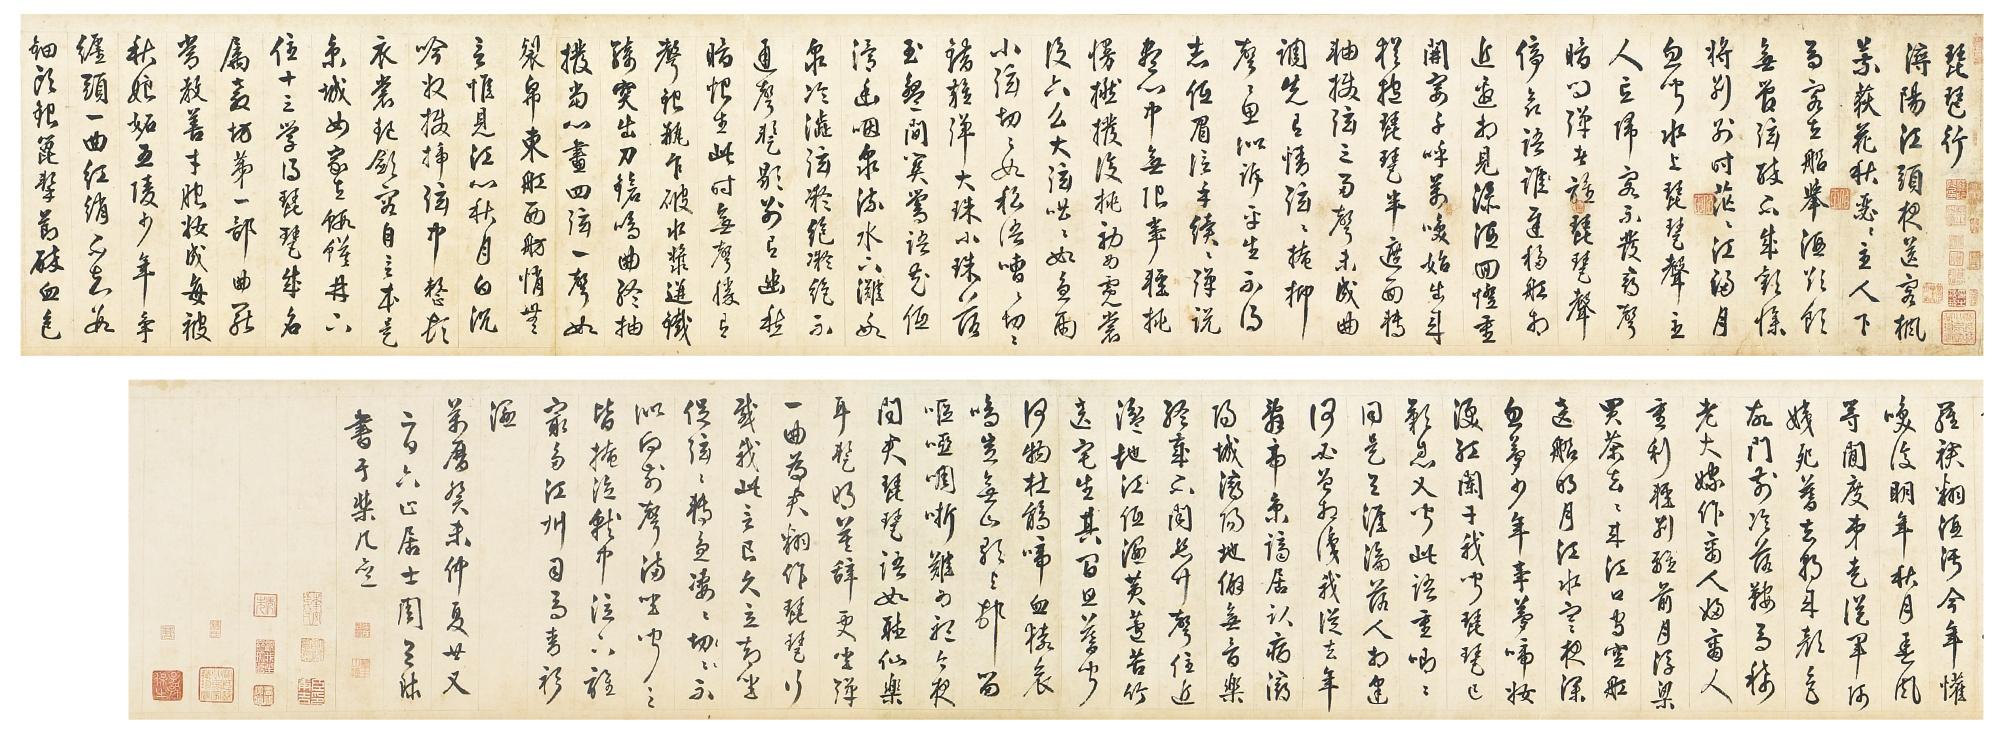 琵琶行
潯陽江頭夜送客楓
葉荻花秋瑟〻主人下
馬客在船舉酒欲飲
無管絃醉不成歡慘
將別別時茫〻江浸月
忽聞水上琵琶聲主
人忘歸客不發尋聲
暗問彈者誰琵琶聲
停欲語遲移船相
近邀相見添酒回燈重
開宴千呼萬喚始出來
猶抱琵琶半遮面轉
軸撥絃三兩聲未成曲
調先有情絃〻掩抑
聲〻思似訴平生不得
志低眉信手續〻彈說
盡心中無限事輕挑
慢撚撥復挑初為霓裳
後六么大絃嘈〻如急雨
小絃切〻如私語嘈〻切〻
錯雜彈大珠小珠落
玉盤間關鶯語花底
滑幽咽泉流水下灘水
泉冷澀絃凝絕凝絕不
通聲蹔歇別有幽愁
暗恨生此時無聲勝有
聲銀瓶乍破水漿迸鐵
騎突出刀鎗鳴曲終抽
撥當心畫四絃一聲如
裂帛東船西舫悄無
言惟見江心秋月白沉
吟收撥插絃中整頓
衣裳起斂容自言本是
京城女家在蝦蟆下
住十三學得琵琶成名
屬教坊第一部曲罷
常教善才服妝成每被
秋娘妬五陵少年爭
纏頭一曲紅綃不知數
鈿頭銀篦擊節碎血色
羅裙翻酒污今年懽
笑復明年秋月春風
等閒度弟走從軍阿
姨死暮去朝來顏色
故門前冷落鞍馬稀
老大嫁作商人婦商人
重利輕別離前月浮梁
買茶去〻來江口守空船
遶船明月江水寒夜深
忽夢少年事夢啼妝
淚紅闌干我聞琵琶已
歎息又聞此語重唧〻
同是天涯淪落人相逢
何必曾相識我從去年
辭帝京謫居臥病潯
陽城潯陽地僻無音樂
終歲不聞絲竹聲住近
湓地江低濕黃蘆苦竹
遶宅生其間旦暮聞
何物杜鵑啼血猿哀
鳴豈無山歌與村笛
嘔啞啁哳難為聽今夜
聞君琵琶語如聽仙樂
耳蹔明莫辭更坐彈
一曲為君翻作琵琶行
感我此言良久立却坐
促絃〻轉急凄〻切〻不
似向前聲滿坐聞〻
皆掩泣就中泣下誰
最多江州司馬青衫
濕
萬曆癸未仲夏廿又
二日六止居士周天球
書于紫几